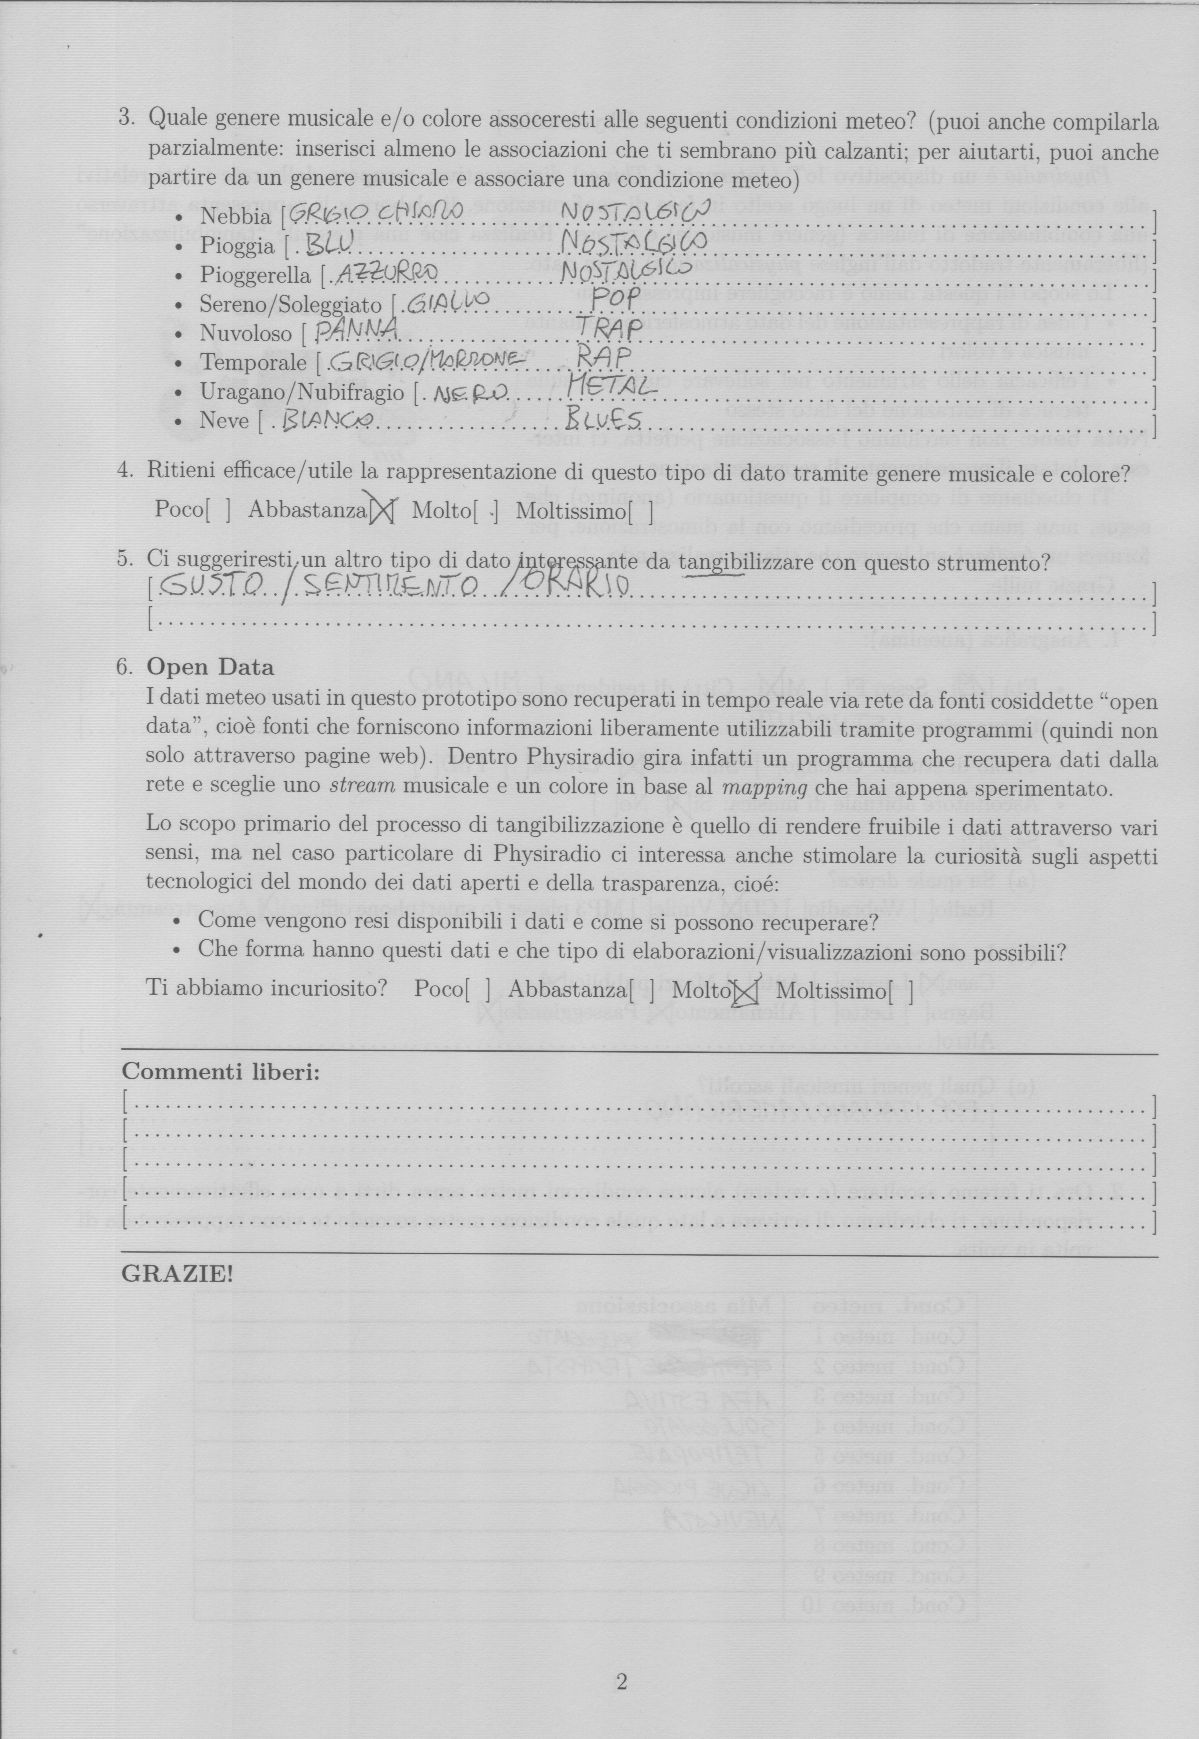 3. Quale genere musicale e/o colore assoceresti alle seguenti condizioni meteo? (puoi anche compilarla
parzialmente: inserisci almeno le associazioni che ti sembrano più calzanti; per aiutarti, puoi anche
partire da un genere musicale e associare una condizione meteo)
• Nebbia [GRIGIO CHIARO NOSTALGICO]
• Pioggia [BLU NOSTALGICO]
• Pioggerella [AZZURRO NOSTALGICO]
• Sereno/Soleggiato [GIALLO POP]
• Nuvoloso [PANNA TRAP]
• Temporale [GRIGIO/MARRONE RAP]
• Uragano/Nubifragio [NERO METAL]
• Neve [BIANCO BLUES]
4. Ritieni efficace/utile la rappresentazione di questo tipo di dato tramite genere musicale e colore?
Poco[ ] Abbastanza[X] Molto[ ] Moltissimo[ ]
5. Ci suggeriresti un altro tipo di dato interessante da tangibilizzare con questo strumento?
[GUSTO / SENTIMENTO / ORARIO]
[ ]
6. Open Data
I dati meteo usati in questo prototipo sono recuperati in tempo reale via rete da fonti cosiddette “open
data”, cioè fonti che forniscono informazioni liberamente utilizzabili tramite programmi (quindi non
solo attraverso pagine web). Dentro Physiradio gira infatti un programma che recupera dati dalla
rete e sceglie uno stream musicale e un colore in base al mapping che hai appena sperimentato.
Lo scopo primario del processo di tangibilizzazione è quello di rendere fruibile i dati attraverso vari
sensi, ma nel caso particolare di Physiradio ci interessa anche stimolare la curiosità sugli aspetti
tecnologici del mondo dei dati aperti e della trasparenza, cioé:
• Come vengono resi disponibili i dati e come si possono recuperare?
• Che forma hanno questi dati e che tipo di elaborazioni/visualizzazioni sono possibili?
Ti abbiamo incuriosito? Poco[ ] Abbastanza[ ] Molto[X] Moltissimo[ ]
Commenti liberi:
[ ]
[ ]
[ ]
[ ]
[ ]
GRAZIE!
2